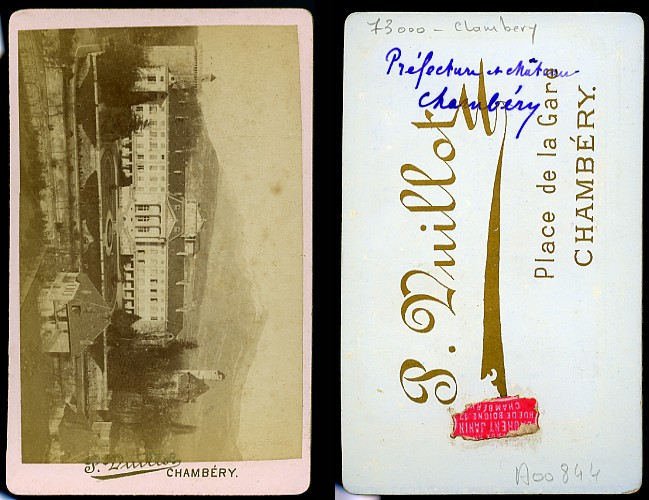 P. Vuillot
CHAMBÉRY.
73000 - Chambery
Préfecture et château
Chambéry
P. Vuillot
Place de la Gare
CHAMBÉRY.
JANIN
RUE DE BOIGNE, 13
CHAMBÉRY
A00844